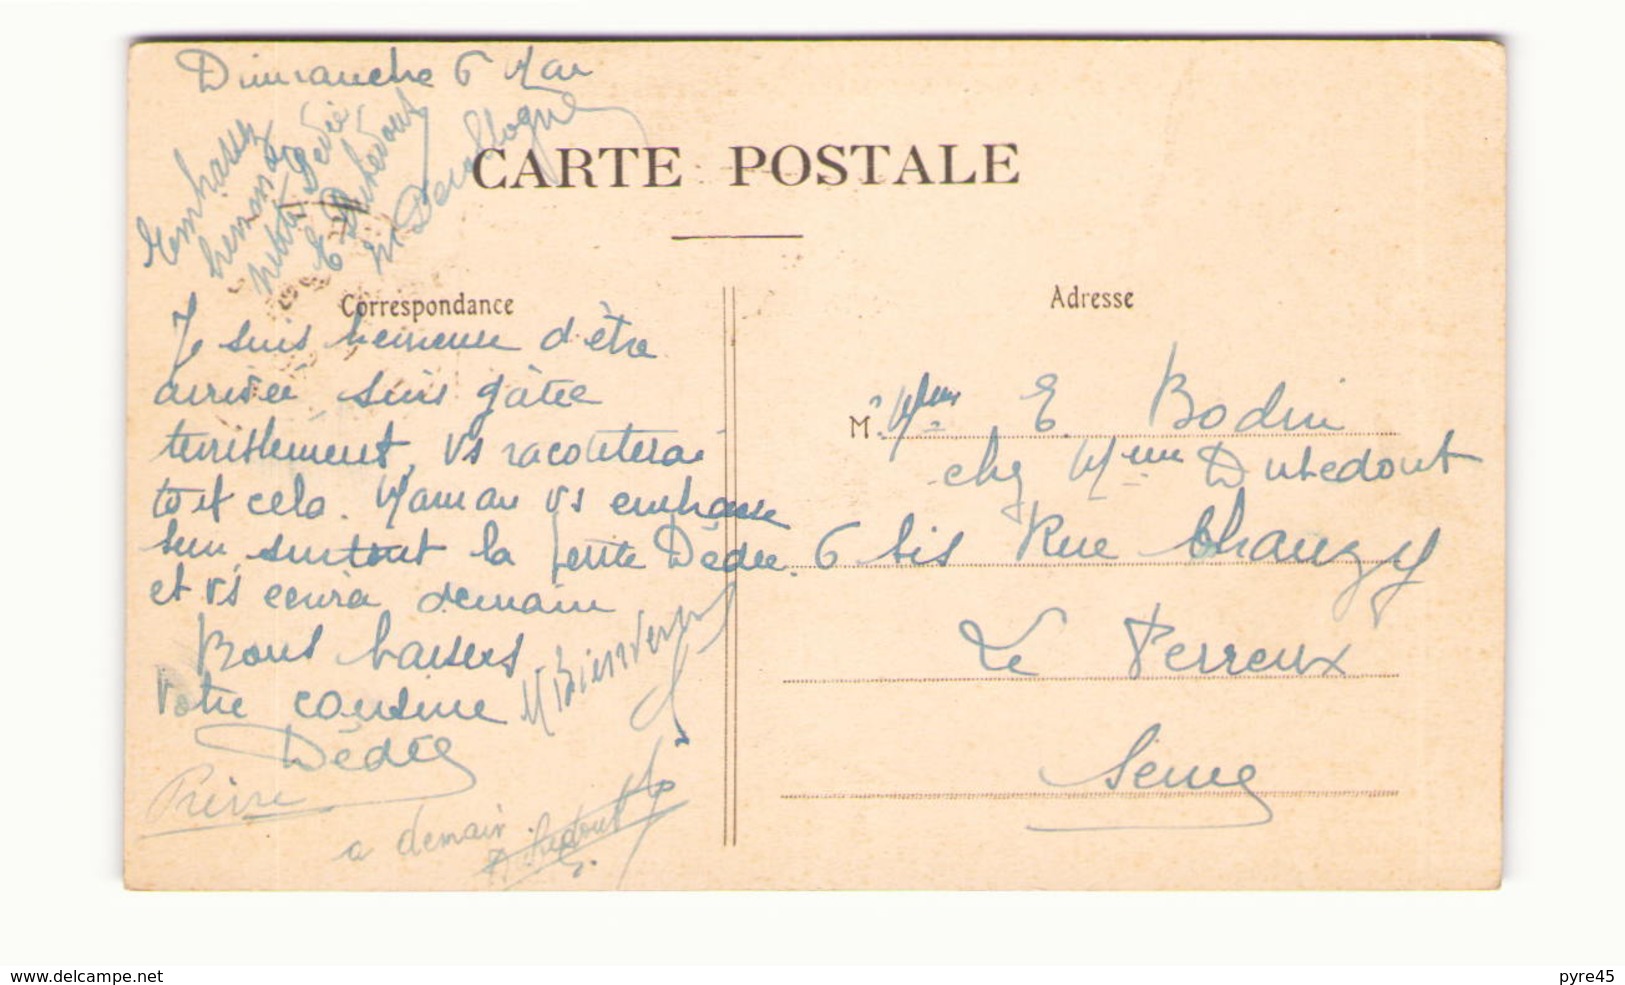 Dimanche 6 Mai
embrassez
petite Dédée
Dubedout
CARTE POSTALE
Correspondance
Adresse
Je suis heureuse d'être
arrivée suis gâtée
terriblement, Vs raconterai
tout cela. Maman vs embrasse
bien, surtout la petite Dédée.
et vs écrira demain
Bons baisers
Votre cousine
Dédée
M Bienvenu
Pierre
a demain
Dubedout
M. Mme E. Bodin
chez Mme Dubedout
6 bis Rue Chanzy
Le Perreux
Seine
www.delcampe.net
pyre45